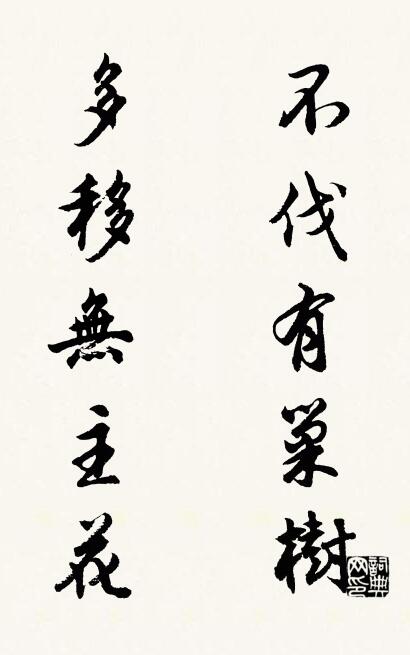 不伐有巢樹
多移無主花
詞典網印